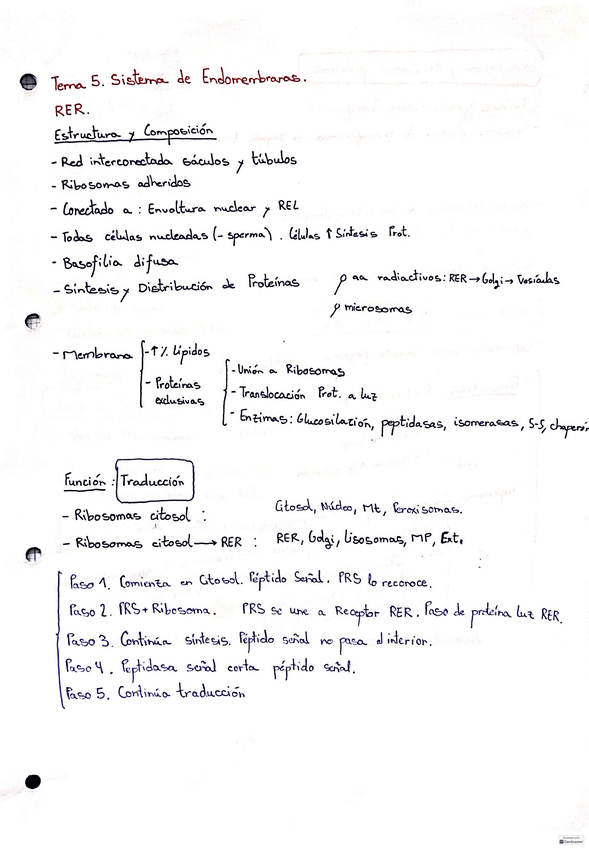 Tema 5. Sistema de Endomembranas.
RER.
Estructura y Composición
- Red interconectada sáculos y túbulos
- Ribosomas adheridos
- Conectado a : Envoltura nuclear y REL
- Todas células nucleadas (- sperma). Células ↑ Síntesis Prot.
- Basofilia difusa
- Síntesis y Distribución de Proteínas
aa radiactivos: RER → Golgi → Vesículas
microsomas
- Membrana
- ↑ % Lípidos
- Proteínas exclusivas
- Unión a Ribosomas
- Translocación Prot. a luz
- Enzimas: Glucosilación, peptidasas, isomerasas, S-S, chaperon
Función : Traducción
- Ribosomas citosol : Citosol, Núcleo, Mt, Peroxisomas.
- Ribosomas citosol → RER : RER, Golgi, Lisosomas, MP, Ext.
Paso 1. Comienza en Citosol. Péptido Señal. PRS lo reconoce.
Paso 2. PRS + Ribosoma. PRS se une a Receptor RER. Paso de proteína luz RER.
Paso 3. Continúa síntesis. Péptido señal no pasa al interior.
Paso 4. Peptidasa señal corta péptido señal.
Paso 5. Continúa traducción
CamScanner